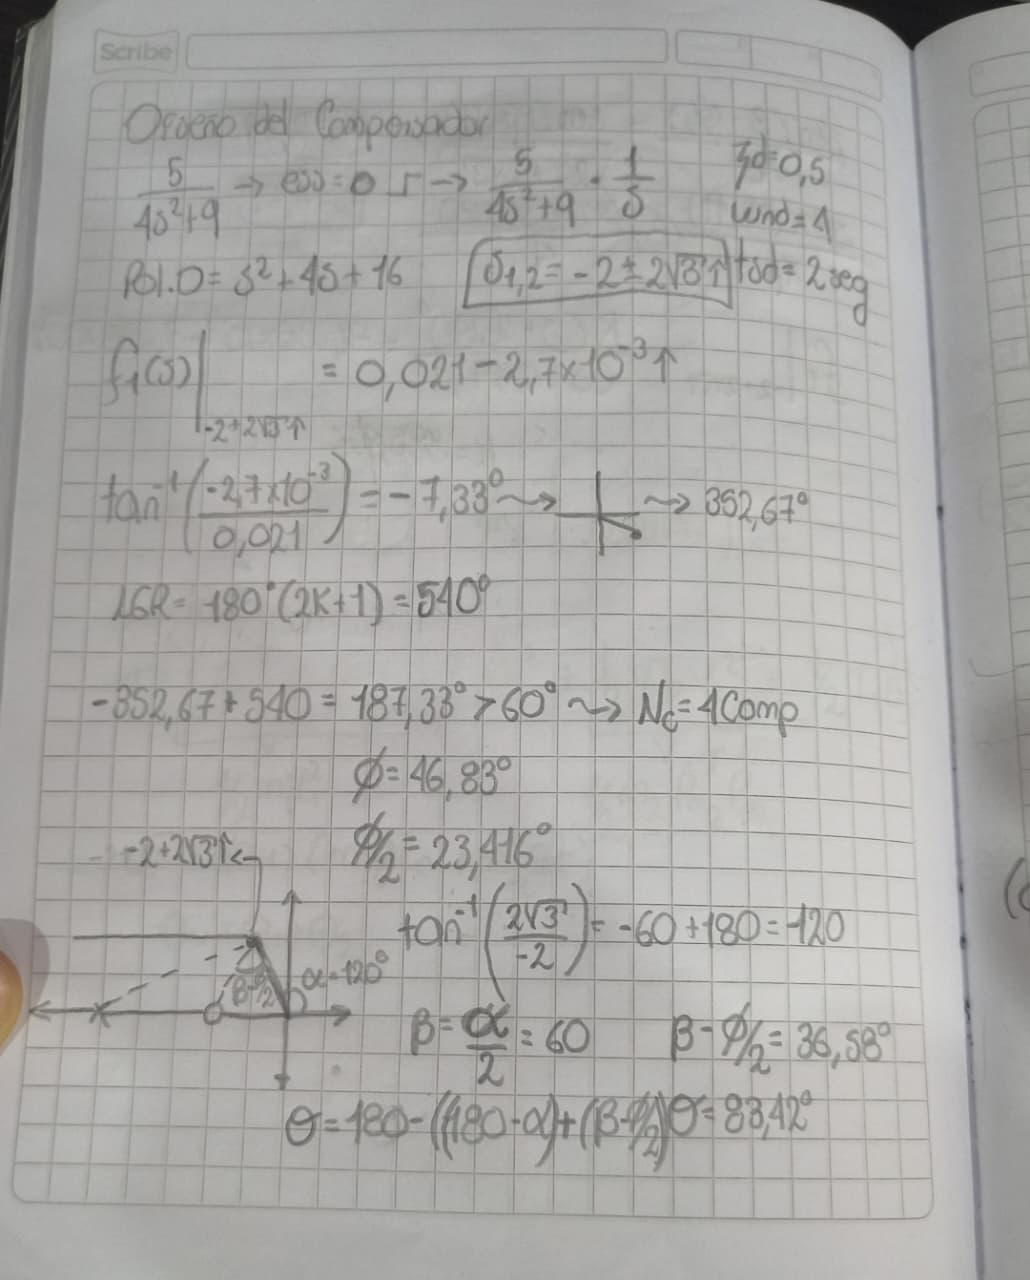 Scribe
Diseño del Compensador
5/(4s²+9) → ess=0 r → 5/(4s²+9) · 1/s ζd=0,5
wnd=4
Pol.D= s²+4s+16 S1,2= -2±2√3 i tsd= 2seg
f1(s)|-2+2√3 i = 0,021-2,7×10⁻³ i
tan⁻¹(-2,7×10⁻³/0,021) = -7,33° ⇝ ⇝ 352,67°
LGR= 180°(2K+1) = 540°
-352,67+540= 187,33° > 60° ⇝ Nc=4Comp
φ= 46,83°
-2+2√3 i φ/2= 23,416°
tan⁻¹(2√3/-2) = -60+180=120
α=120°
β-φ/2
β= α/2 = 60 β-φ/2= 36,58°
θ=180-((180-α)+(β-φ/2) θ= 83,42°